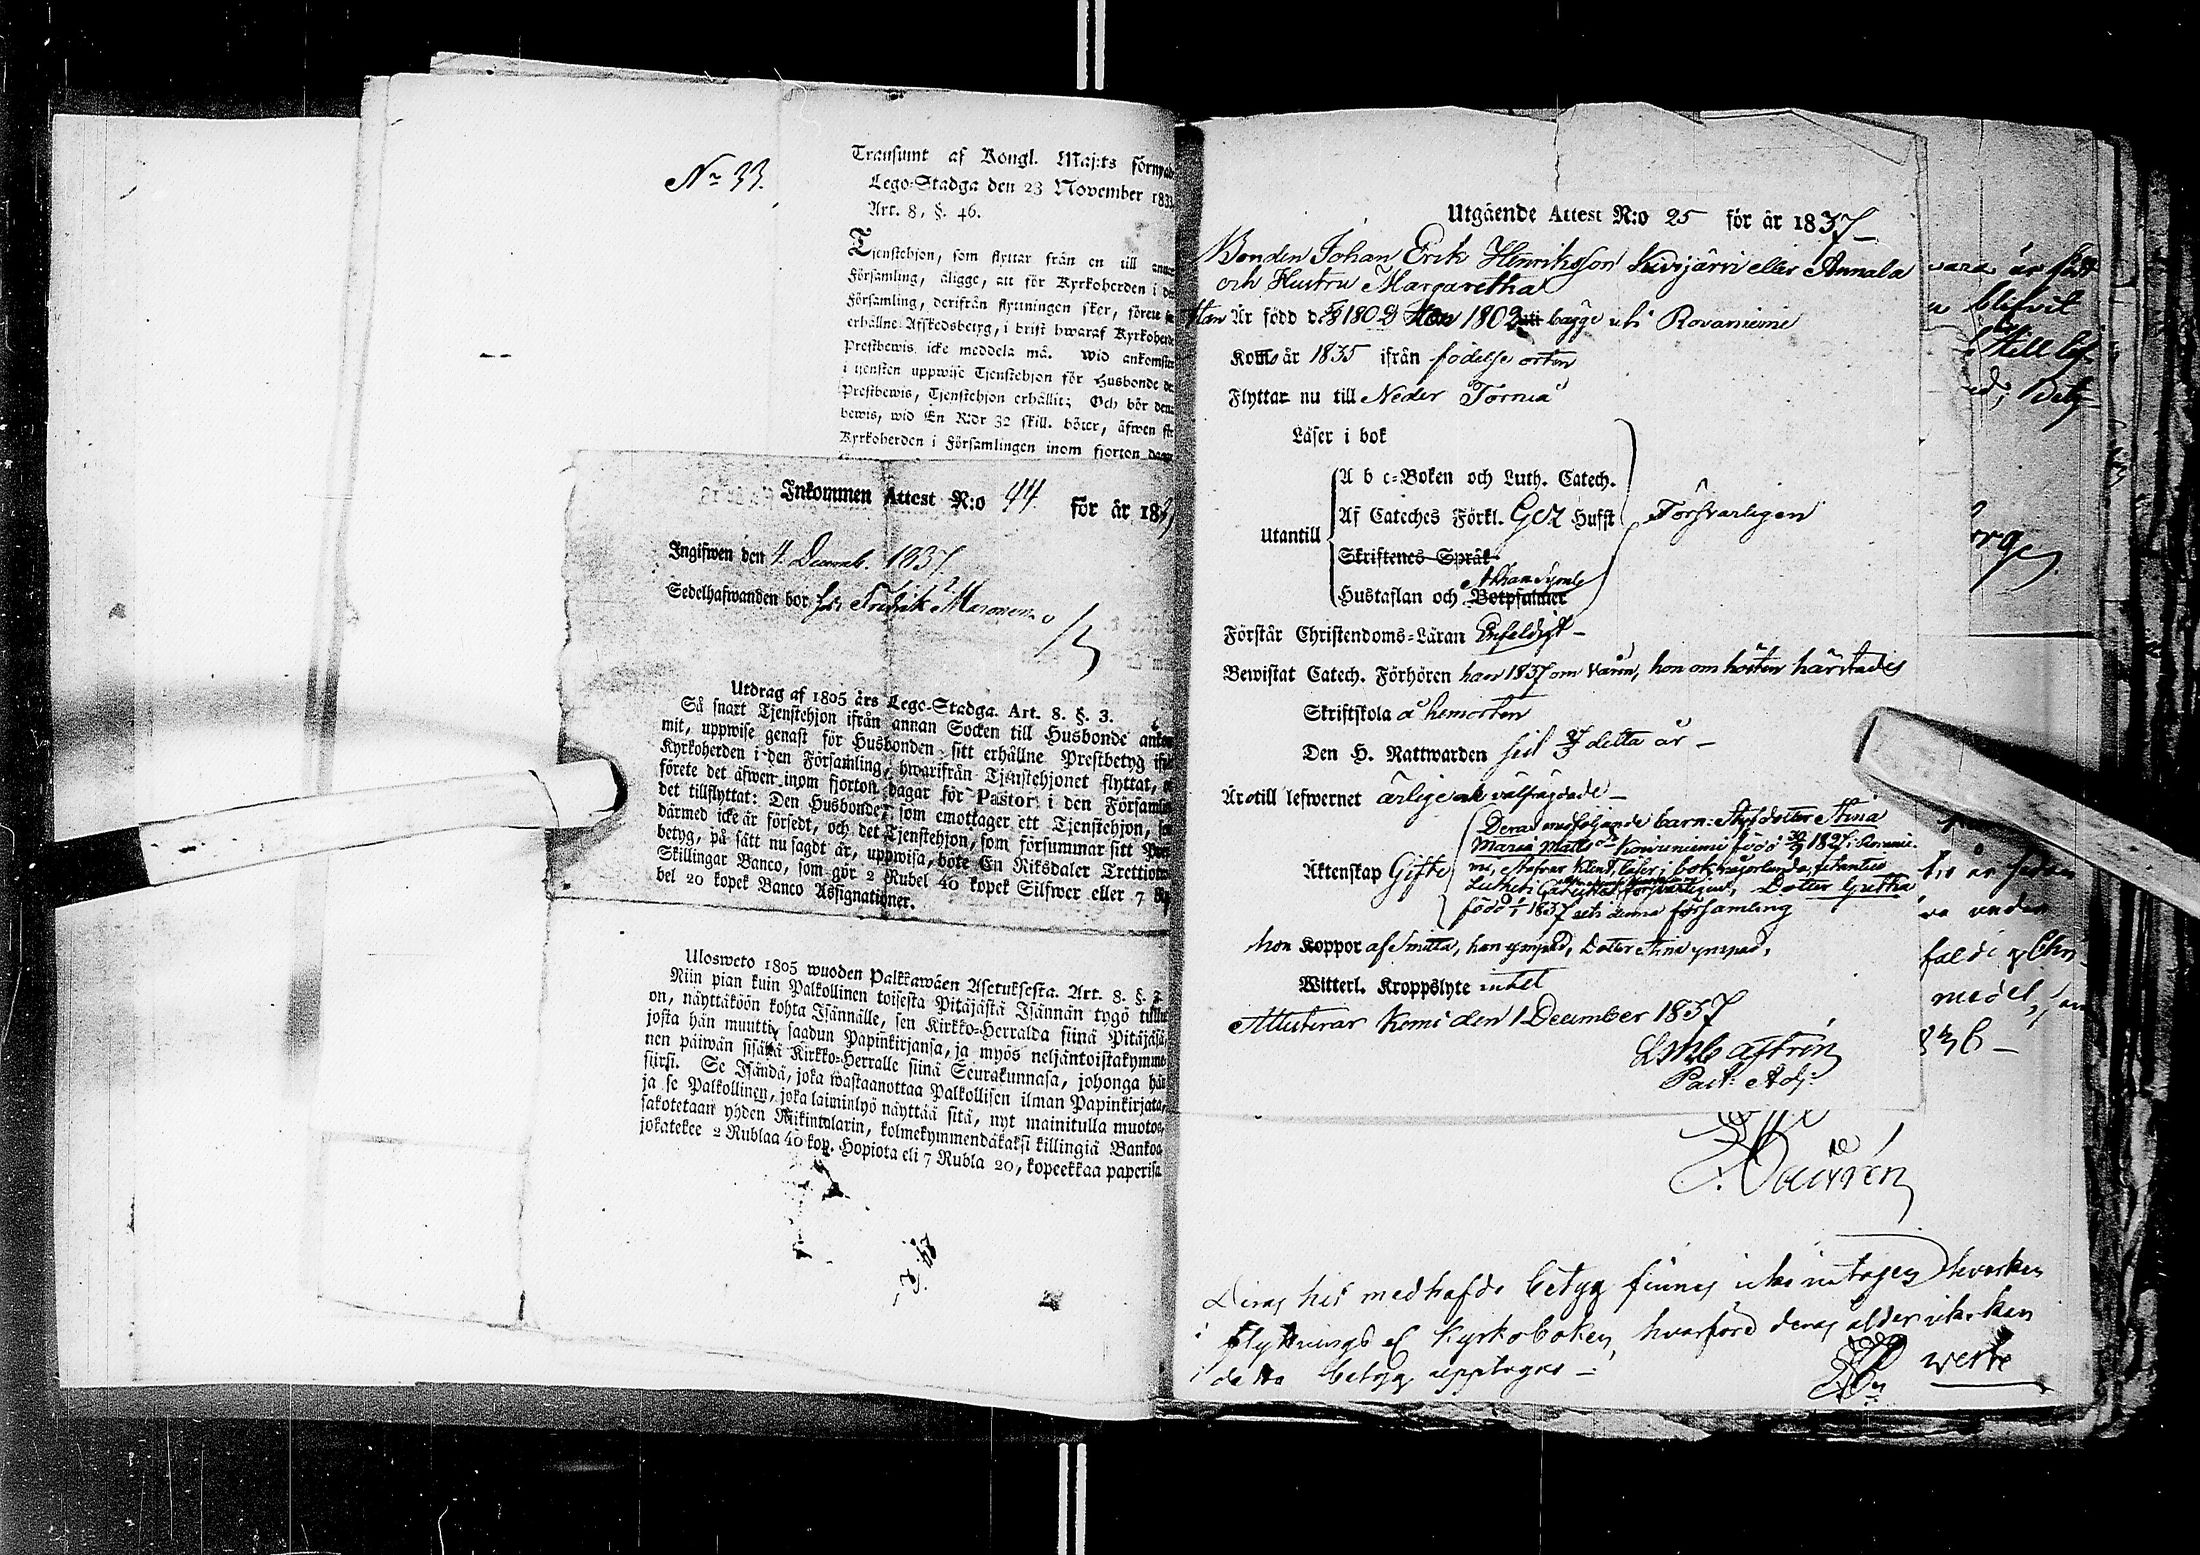 N:o 33.
Transumt af Kongl. Maj:ts förnyad
Lego-Stadga den 23 November 1833
Art. 8, §. 46.
Tjenstehjon, som flyttar från en till annan
Församling, åligge, att för Kyrkoherden i den
Församling, derifrån flyttningen sker, förete
erhållne Afskedsbetyg, i brist hwaraf Kyrkoherde
Prestbewis icke meddela må. Wid ankomsten
i tjensten uppwise Tjenstehjon för Husbonde de
Prestbewis, Tjenstehjon erhållit; Och bör den
bewis, wid En R:dr 32 skill. böter, äfwen
Kyrkoherden i Församlingen inom fjorton dagar
Inkommen Attest N:o 44 för år 183
Ingifwen den 4 Decemb. 1837.
Sedelhafwanden bor Fredrik Maronen
Utdrag af 1805 års Lego-Stadga. Art. 8. §. 3.
Så snart Tjenstehjon ifrån annan Socken till Husbonde ankom
mit, uppwise genast för Husbonden sitt erhållne Prestbetyg
Kyrkoherden i den Församling, hwarifrån Tjenstehjonet flyttat,
förete det äfwen inom fjorton dagar för Pastor i den Församl
det tillflyttat: Den Husbonde, som emottager ett Tjenstehjon,
därmed icke är försedt, och det Tjenstehjon, som försummar sitt
betyg, på sätt nu sagdt är, uppwisa, böte En Riksdaler Trettio
Skillingar Banco, som gör 2 Rubel 40 kopek Silfwer eller 7
bel 20 kopek Banco Assignationer.
Ulosweto 1805 wuoden Palkkawäen Asetuksesta. Art. 8. §. 3.
Niin pian kuin Palkollinen toisesta Pitäjästä Isännän tygö tullu
on, näyttäköön kohta Isännälle, sen Kirkko-Herralda siinä Pitäjäsä
josta hän muutti, saadun Papinkirjansa, ja myös neljäntoistakymme
nen päiwän sisällä Kirkko-Herralle siinä Seurakunnasa, johonga hän
siirsi. Se Isändä, joka wastaanottaa Palkollisen ilman Papinkirjata,
ja se Palkollinen, joka laiminlyö näyttää sitä, nyt mainitulla muotoa
sakotetaan yhden Riikintalarin, kolmekymmendäkaksi killingiä Bankoa
jokatekee 2 Rublaa 40 kop. Hopiota eli 7 Rubla 20, kopeekkaa paperisa
Utgående Attest N:o 25 för år 1837
Bonden Johan Erik Henriksson Sudsjärvi eller Annala
och Hustru Margaretha
Han Är född d. 1802 1802 bägge uti Rovaniemi
Kom år 1835 ifrån födelse orten
Flyttar nu till Neder Torneå
Läser i bok
Utantill
A b c-Boken och Luth. Catech.
Af Cateches Förkl. Gez Hufst
Försvarligen
Skriftenes Språk
Athan. Symb.
Hustaflan och Botpsalmer
Förstår Christendoms-Läran Enfeldigt
Bewistat Catech. Förhören han 1837 om våren, hon om hösten härstädes
Skriftskola å hemorten
Den H. Nattwarden sist detta år
Är till lefwernet ärlige och välfrägdade
Äktenskap Gifte
Deras medföljande barn: Styfdotter Stina
Maria Matts dr född 1827 i Rovanie
mi, läser i bok någorlunda, utantill
Lutheri försvarligen, Dotter Gretha
född 1837 uti denna församling
hon Koppor af Smitta, han ympad, Dotter Stina ympad,
Witterl. Kroppslyte intet
Attesterar Kemi den 1 December 1837
Castrén
Past. Adj:
Deras hit medhafda betyg finnas icke intagen hvarken
i flyttnings el Kyrkoboken, hvarföre deras ålder icke kan
i detta betyg upptagas